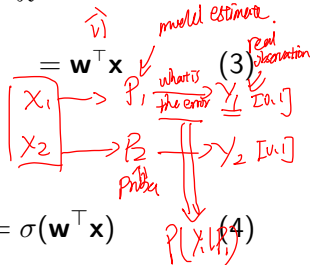 model estimate.
= w⊤x (3) real observation
X₁ → P₁ what is the error Y₁ [0,1]
X₂ → P₂ → Y₂ [0,1]
= σ(w⊤x) (4)